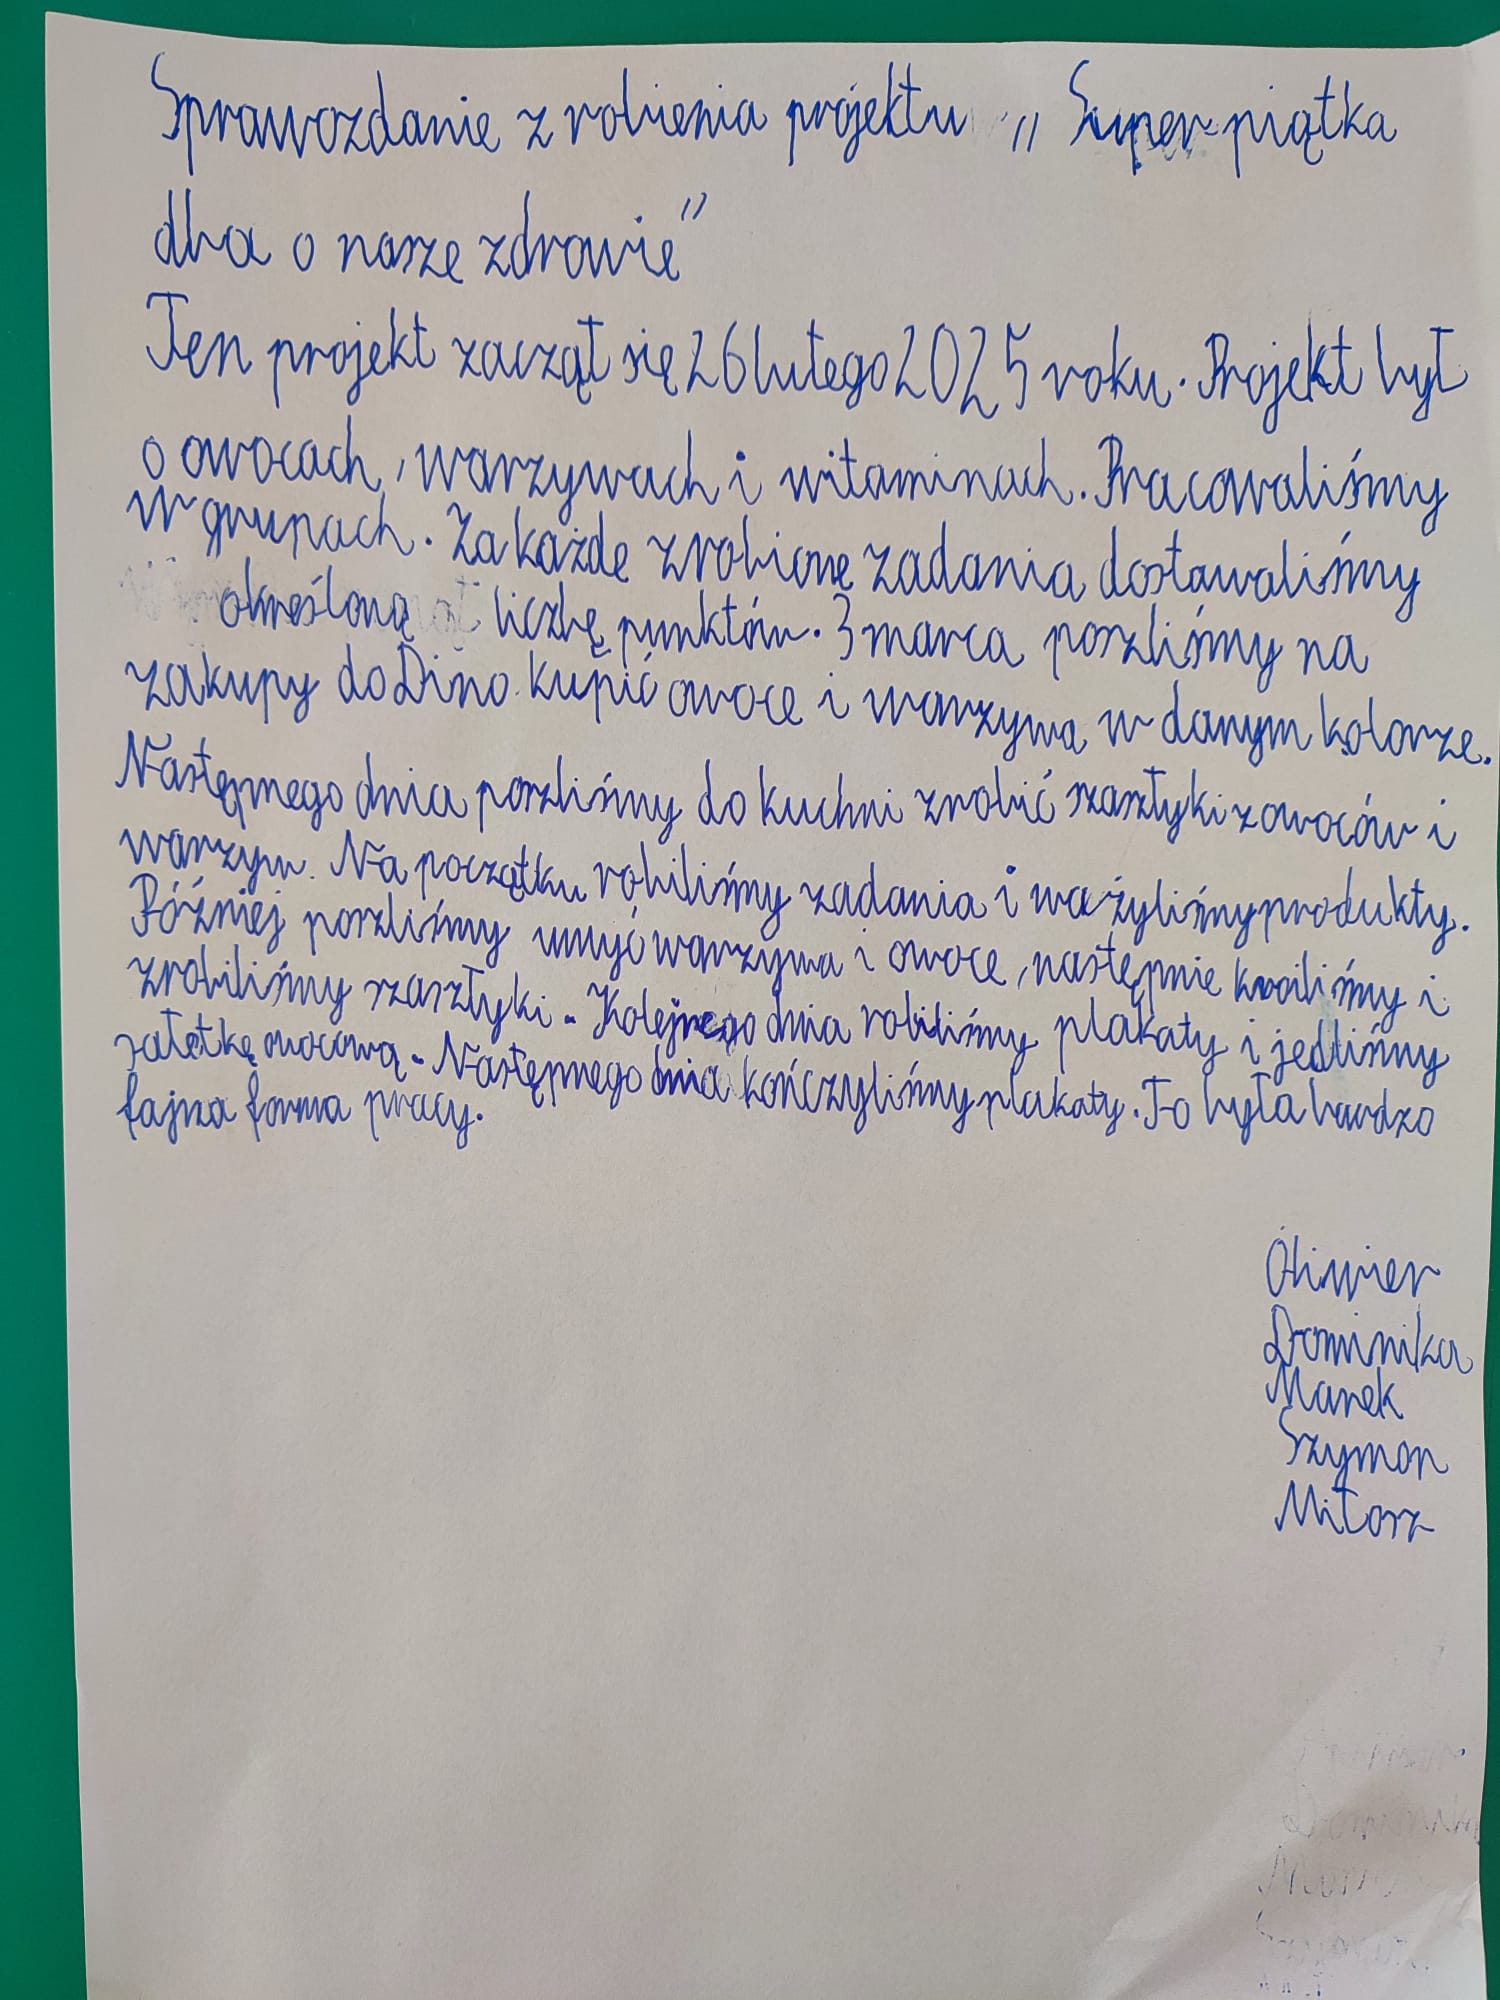 Sprawozdanie z robienia projektu „Super piątka
dba o nasze zdrowie”
Ten projekt zaczął się 26 lutego 2025 roku. Projekt był
o owocach, warzywach i witaminach. Pracowaliśmy
w grupach. Za każde zrobione zadania dostawaliśmy
określoną liczbę punktów. 3 marca poszliśmy na
zakupy do Dino kupić owoce i warzywa w danym kolorze.
Następnego dnia poszliśmy do kuchni zrobić szaszłyki z owoców i
warzyw. Na początku robiliśmy zadania i ważyliśmy produkty.
Później poszliśmy umyć warzywa i owoce, następnie kroiliśmy i
zrobiliśmy szaszłyki. Kolejnego dnia robiliśmy plakaty i jedliśmy
sałatkę owocową. Następnego dnia kończyliśmy plakaty. To była bardzo
fajna forma pracy.
Oliwier
Dominika
Marek
Szymon
Miłosz